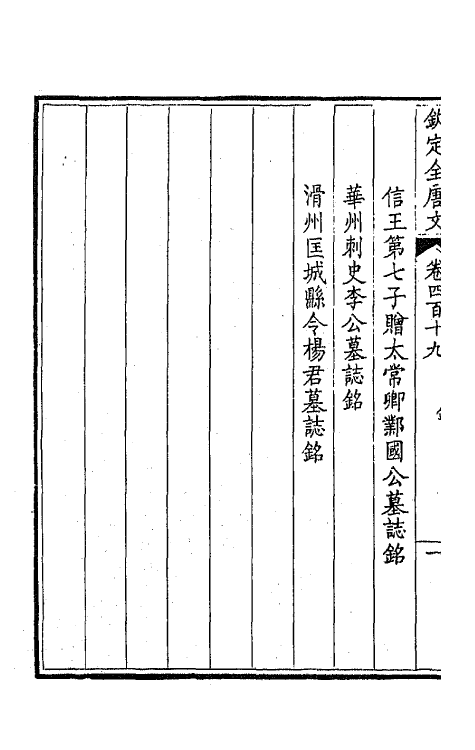 欽定全唐文 卷四百十九 一
信王第七子贈太常卿酇國公墓誌銘
華州刺史李公墓誌銘
滑州匡城縣令楊君墓誌銘